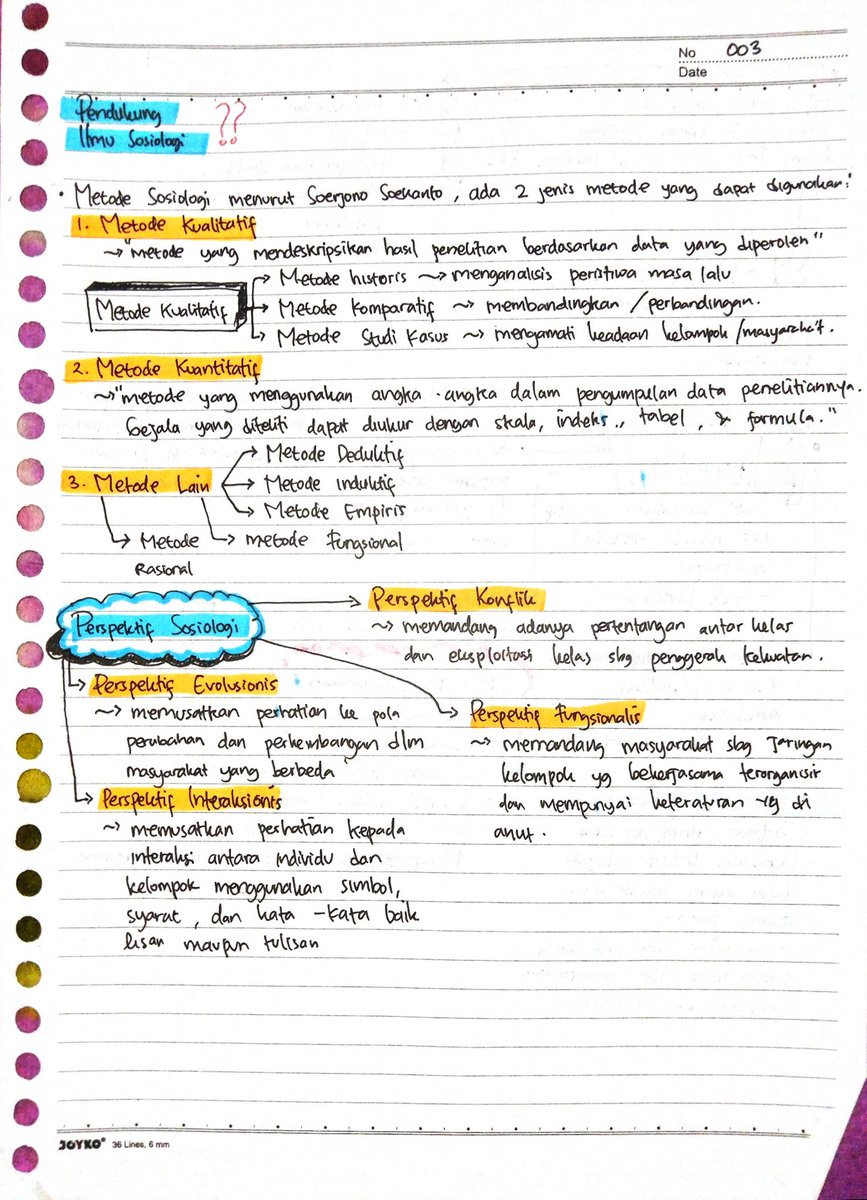 No 003
Date
Pendukung
Ilmu Sosiologi ??
• Metode Sosiologi menurut Soerjono Soekanto, ada 2 jenis metode yang dapat digunakan:
1. Metode Kualitatif
~> "metode yang mendeskripsikan hasil penelitian berdasarkan data yang diperoleh"
Metode Kualitatif
→ Metode historis ~> menganalisis peristiwa masa lalu
→ Metode Komparatif ~> membandingkan / perbandingan.
→ Metode Studi Kasus ~> mengamati keadaan kelompok / masyarakat.
2. Metode Kuantitatif
~> "metode yang menggunakan angka-angka dalam pengumpulan data penelitiannya.
Gejala yang diteliti dapat diukur dengan skala, indeks, tabel, & formula."
3. Metode Lain
→ Metode Deduktif
→ Metode Induktif
→ Metode Empiris
→ Metode
Rasional
→ metode Fungsional
Perspektif Sosiologi
→ Perspektif Konflik
~> memandang adanya pertentangan antar kelas
dan eksploitasi kelas sbg penggerak kekuatan.
→ Perspektif Evolusionis
~> memusatkan perhatian ke pola
perubahan dan perkembangan dlm
masyarakat yang berbeda
→ Perspektif Fungsionalis
~> memandang masyarakat sbg Jaringan
kelompok yg bekerjasama terorganisir
dan mempunyai keteraturan yg di
anut.
→ Perspektif Interaksionis
~> memusatkan perhatian kepada
interaksi antara individu dan
kelompok menggunakan simbol,
syarat, dan kata-kata baik
lisan maupun tulisan
JOYKO® 36 Lines, 6 mm